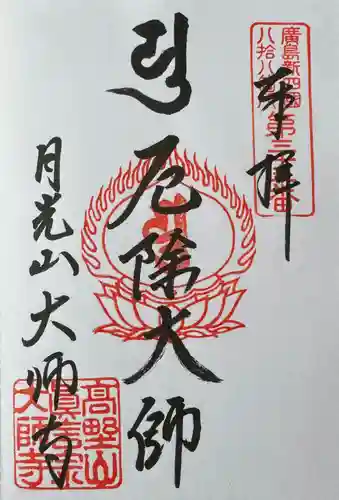 奉拝
廣島新四國
八拾八
第三
厄除大師
月光山大師寺
高野山
真言宗
大師寺